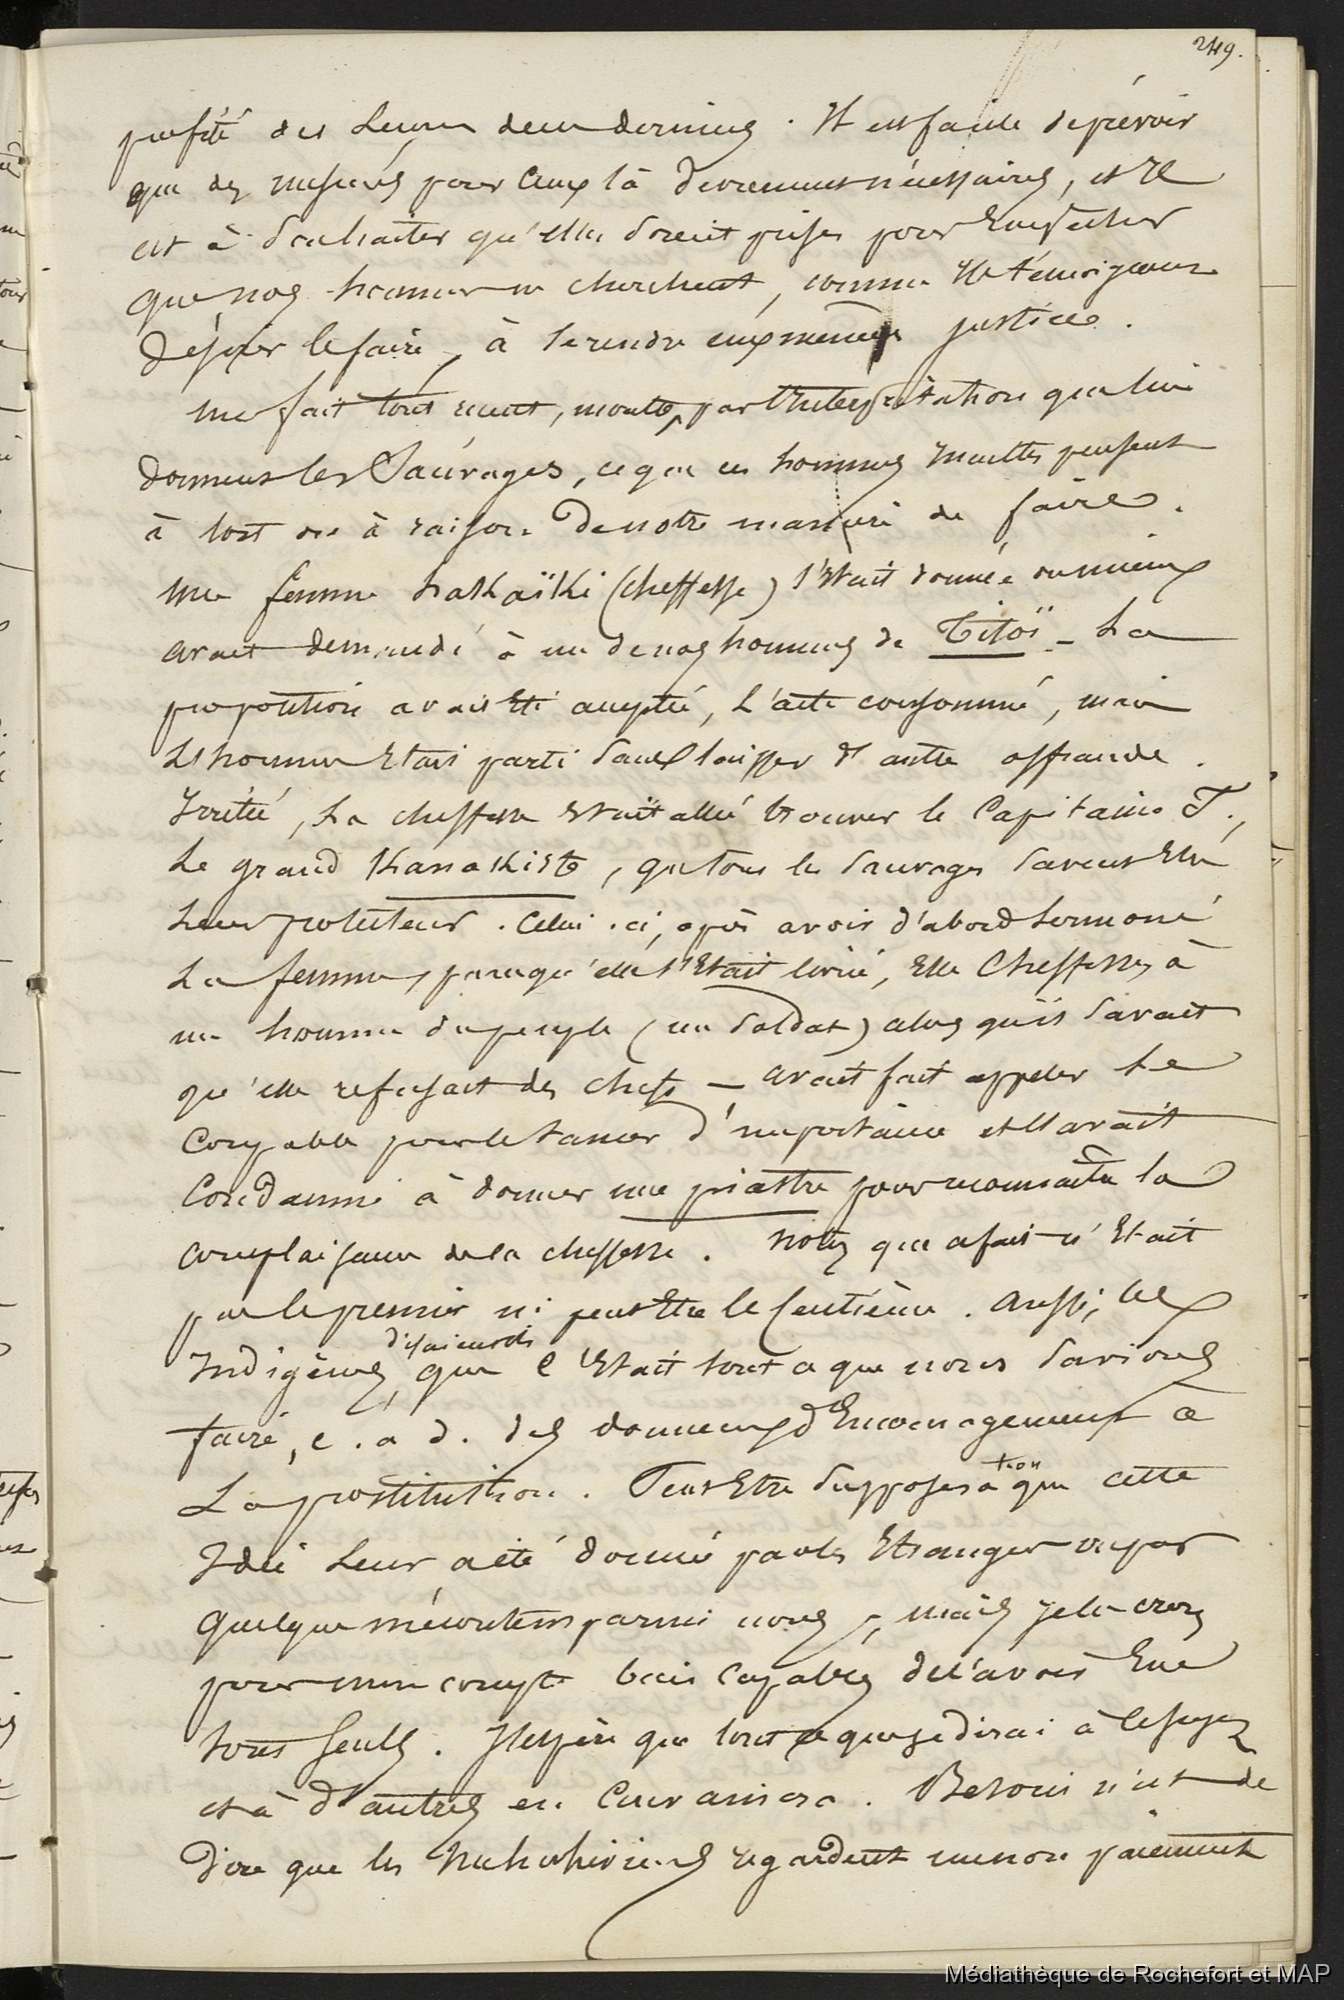 249.
profité des leçons deux derniers. Il est facile de prévoir
que des mesures pour ceux là deviennent nécessaires, et il
est à souhaiter qu'elles soient prises pour empêcher
que nos hommes ne cherchent, comme ils témoignent
désirer le faire, à se rendre eux mêmes justice.
Un fait tout récent, montre, par l'interprétation que lui
donnent les Sauvages, ce que ces hommes incultes pensent
à tort ou à raison de notre manière de faire.
Une femme hakaïki (cheffesse) s'était donnée ou mieux
avait demandé à un de nos hommes de Titoï - La
proposition avait été acceptée, l'acte consommé, mais
l'homme était parti sans laisser d'autre offrande.
Irritée, la cheffesse était allée trouver le Capitaine T.,
le grand Kanakiste, que tous les sauvages savent être
leur protecteur. Celui-ci, après avoir d'abord sermoné
la femme, parce qu'elle s'était livrée, elle Cheffesse, à
un homme du peuple (un soldat) alors qu'il savait
qu'elle refusait des chefs - avait fait appeler le
coupable pour le tancer d'importance et l'avait
condamné à donner une piastre pour reconnaître la
complaisance de la cheffesse. Notez que ce fait n'était
pas le premier ni peut être le centième. Aussi, les
Indigènes disaient-ils que c'était tout ce que nous savions
faire, c. a d. des donneurs d'Encouragement à
La prostitution. Peut Etre supposera t-on que cette
Idée leur a été donnée par les Etrangers ou par
quelque mécontens parmi nous, mais je les crois
pour mon compte bien capables de l'avoir Eue
tous seuls. J'espère que tout ce que je dirai à ce sujet
et à d'autres en convaincra. Besoin n'est de
dire que les Nukahiviens regardent un non paiement
Médiathèque de Rochefort et MAP